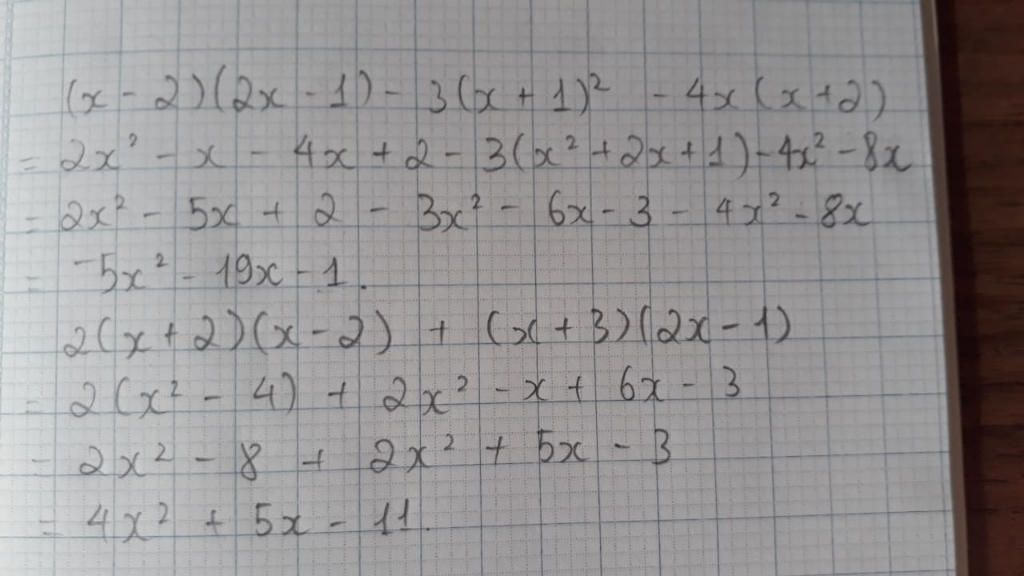 (x - 2)(2x - 1) - 3(x + 1)² - 4x(x + 2)
= 2x² - x - 4x + 2 - 3(x² + 2x + 1) - 4x² - 8x
= 2x² - 5x + 2 - 3x² - 6x - 3 - 4x² - 8x
= -5x² - 19x - 1.
2(x + 2)(x - 2) + (x + 3)(2x - 1)
= 2(x² - 4) + 2x² - x + 6x - 3
= 2x² - 8 + 2x² + 5x - 3
= 4x² + 5x - 11.